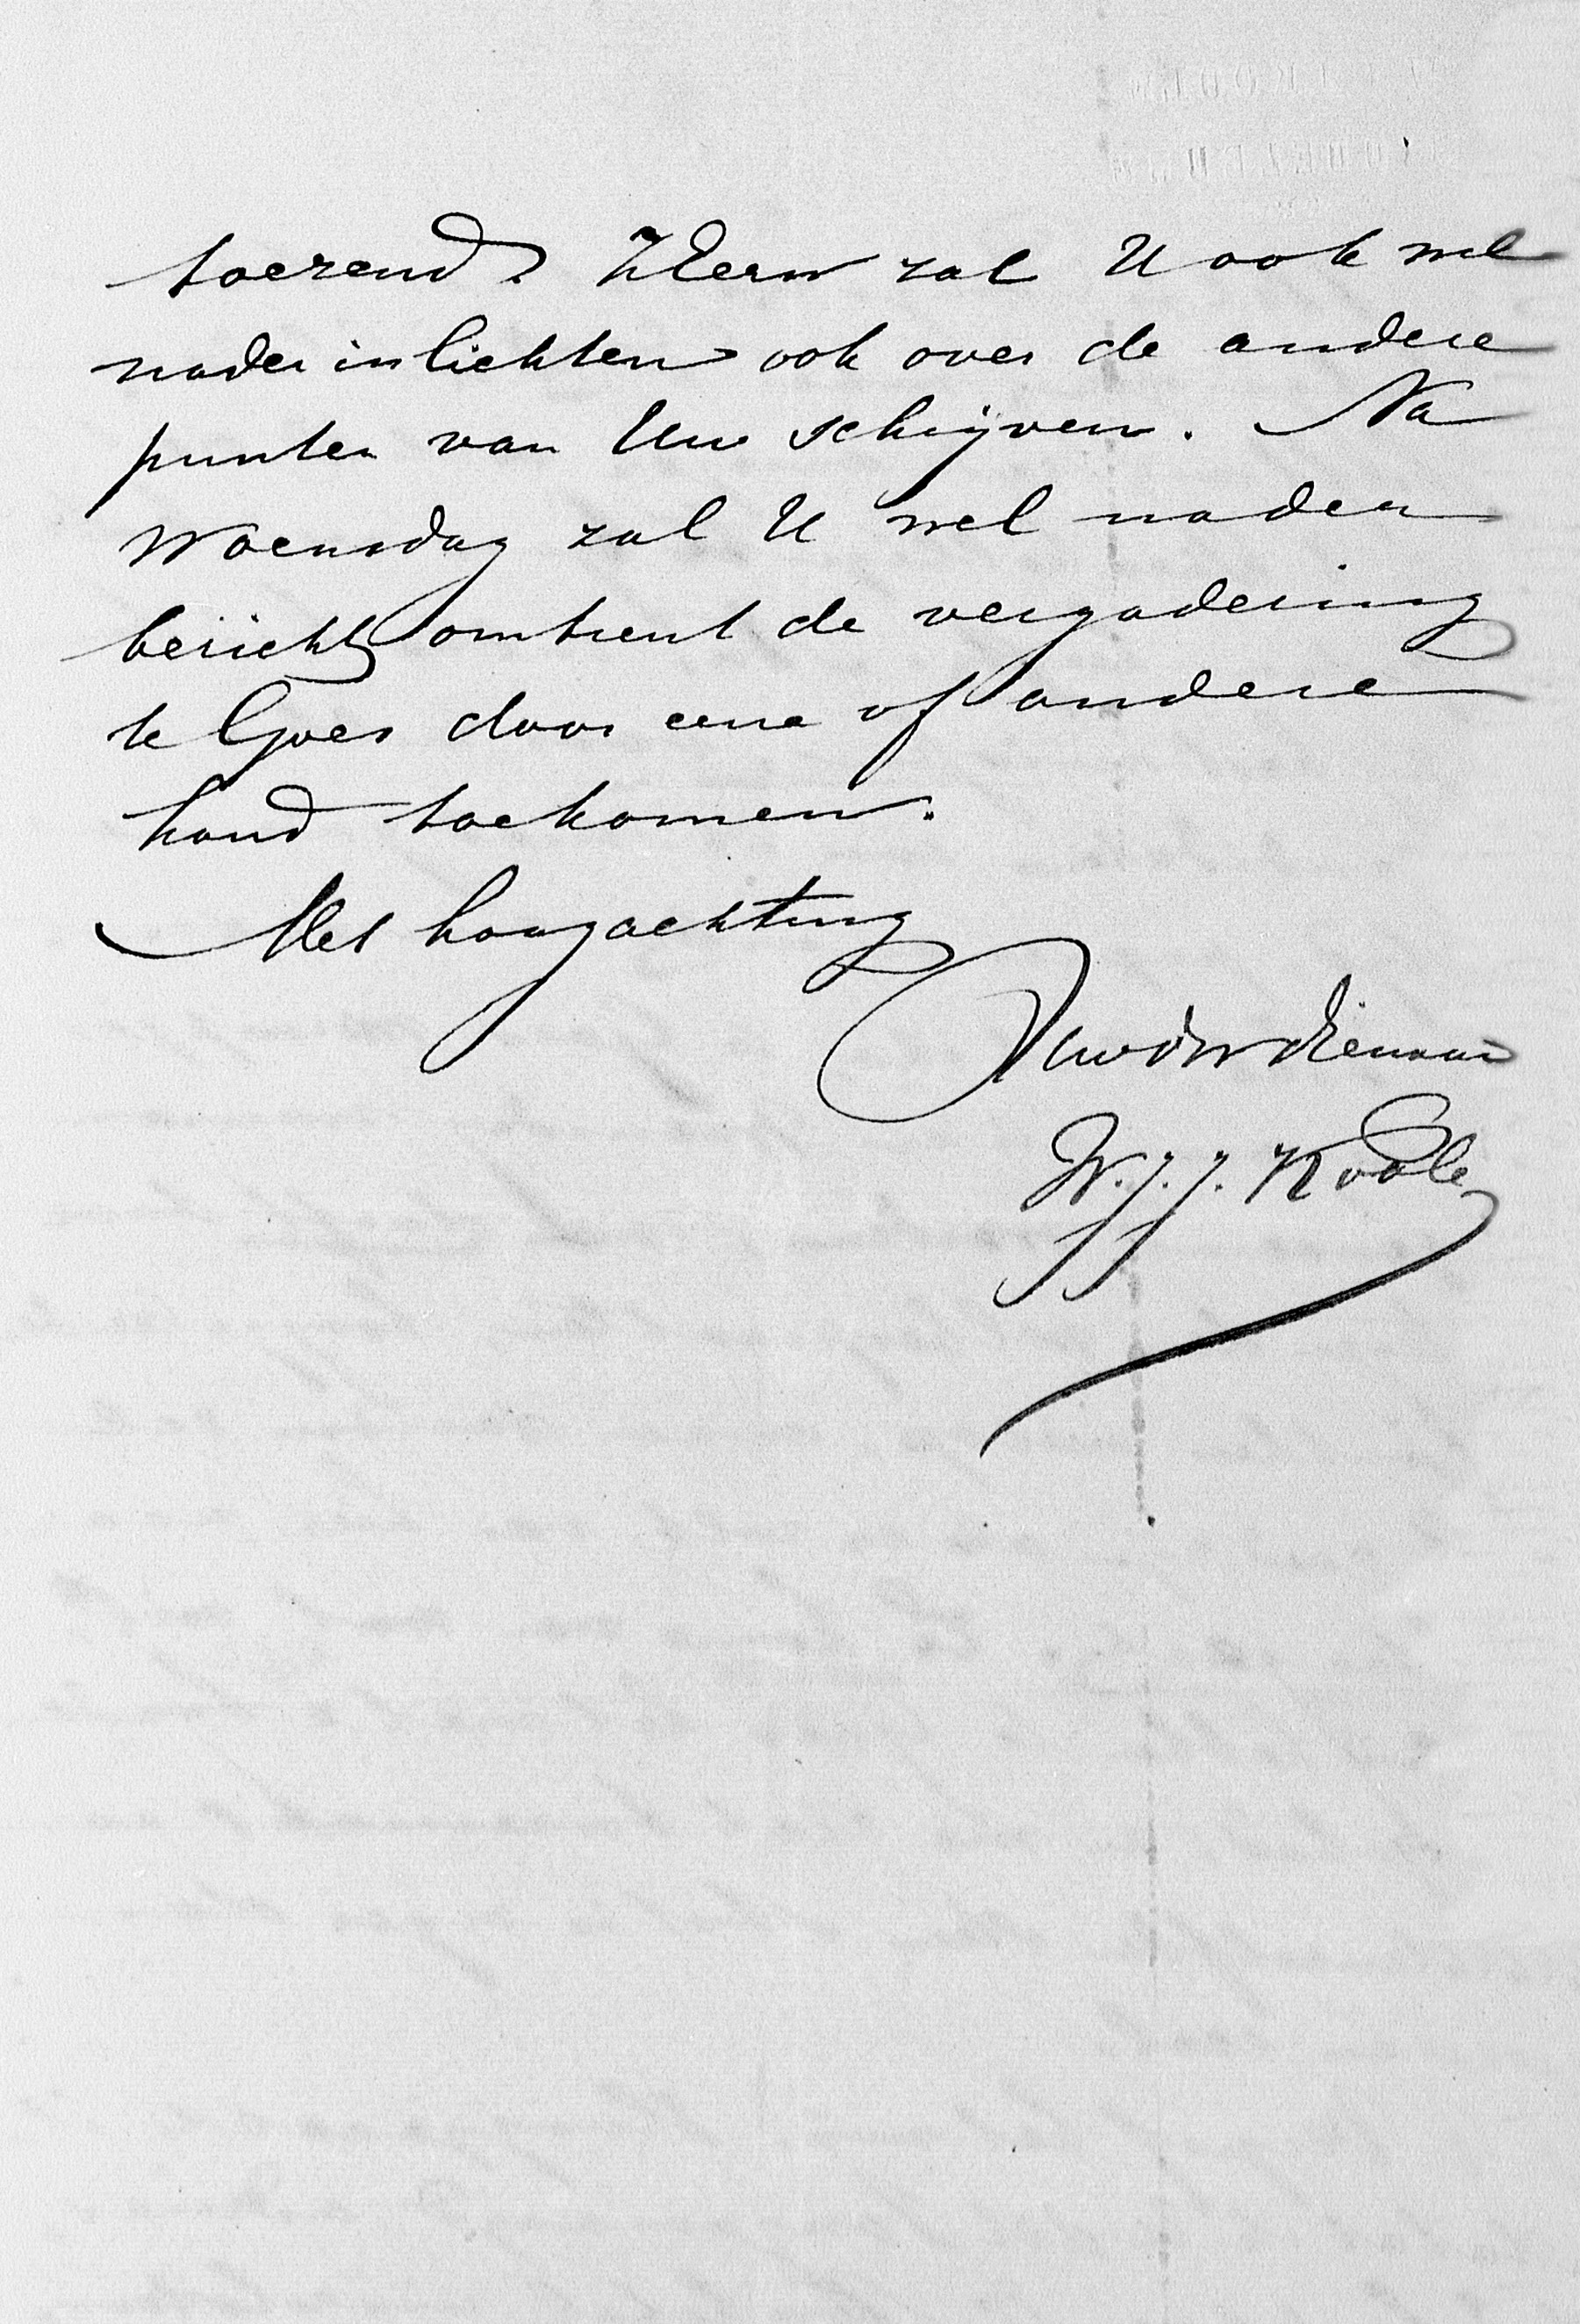 toezend? ZEerw zal U ook wel
nader inlichten ook over de andere
punten van Uw schrijven. Na
Woensdag zal U wel nader
bericht omtrent de vergadering
te Goes door eene of andere
hand toekomen.
Met hoogachting
Uwdwdienaar
W.J.J. Koole